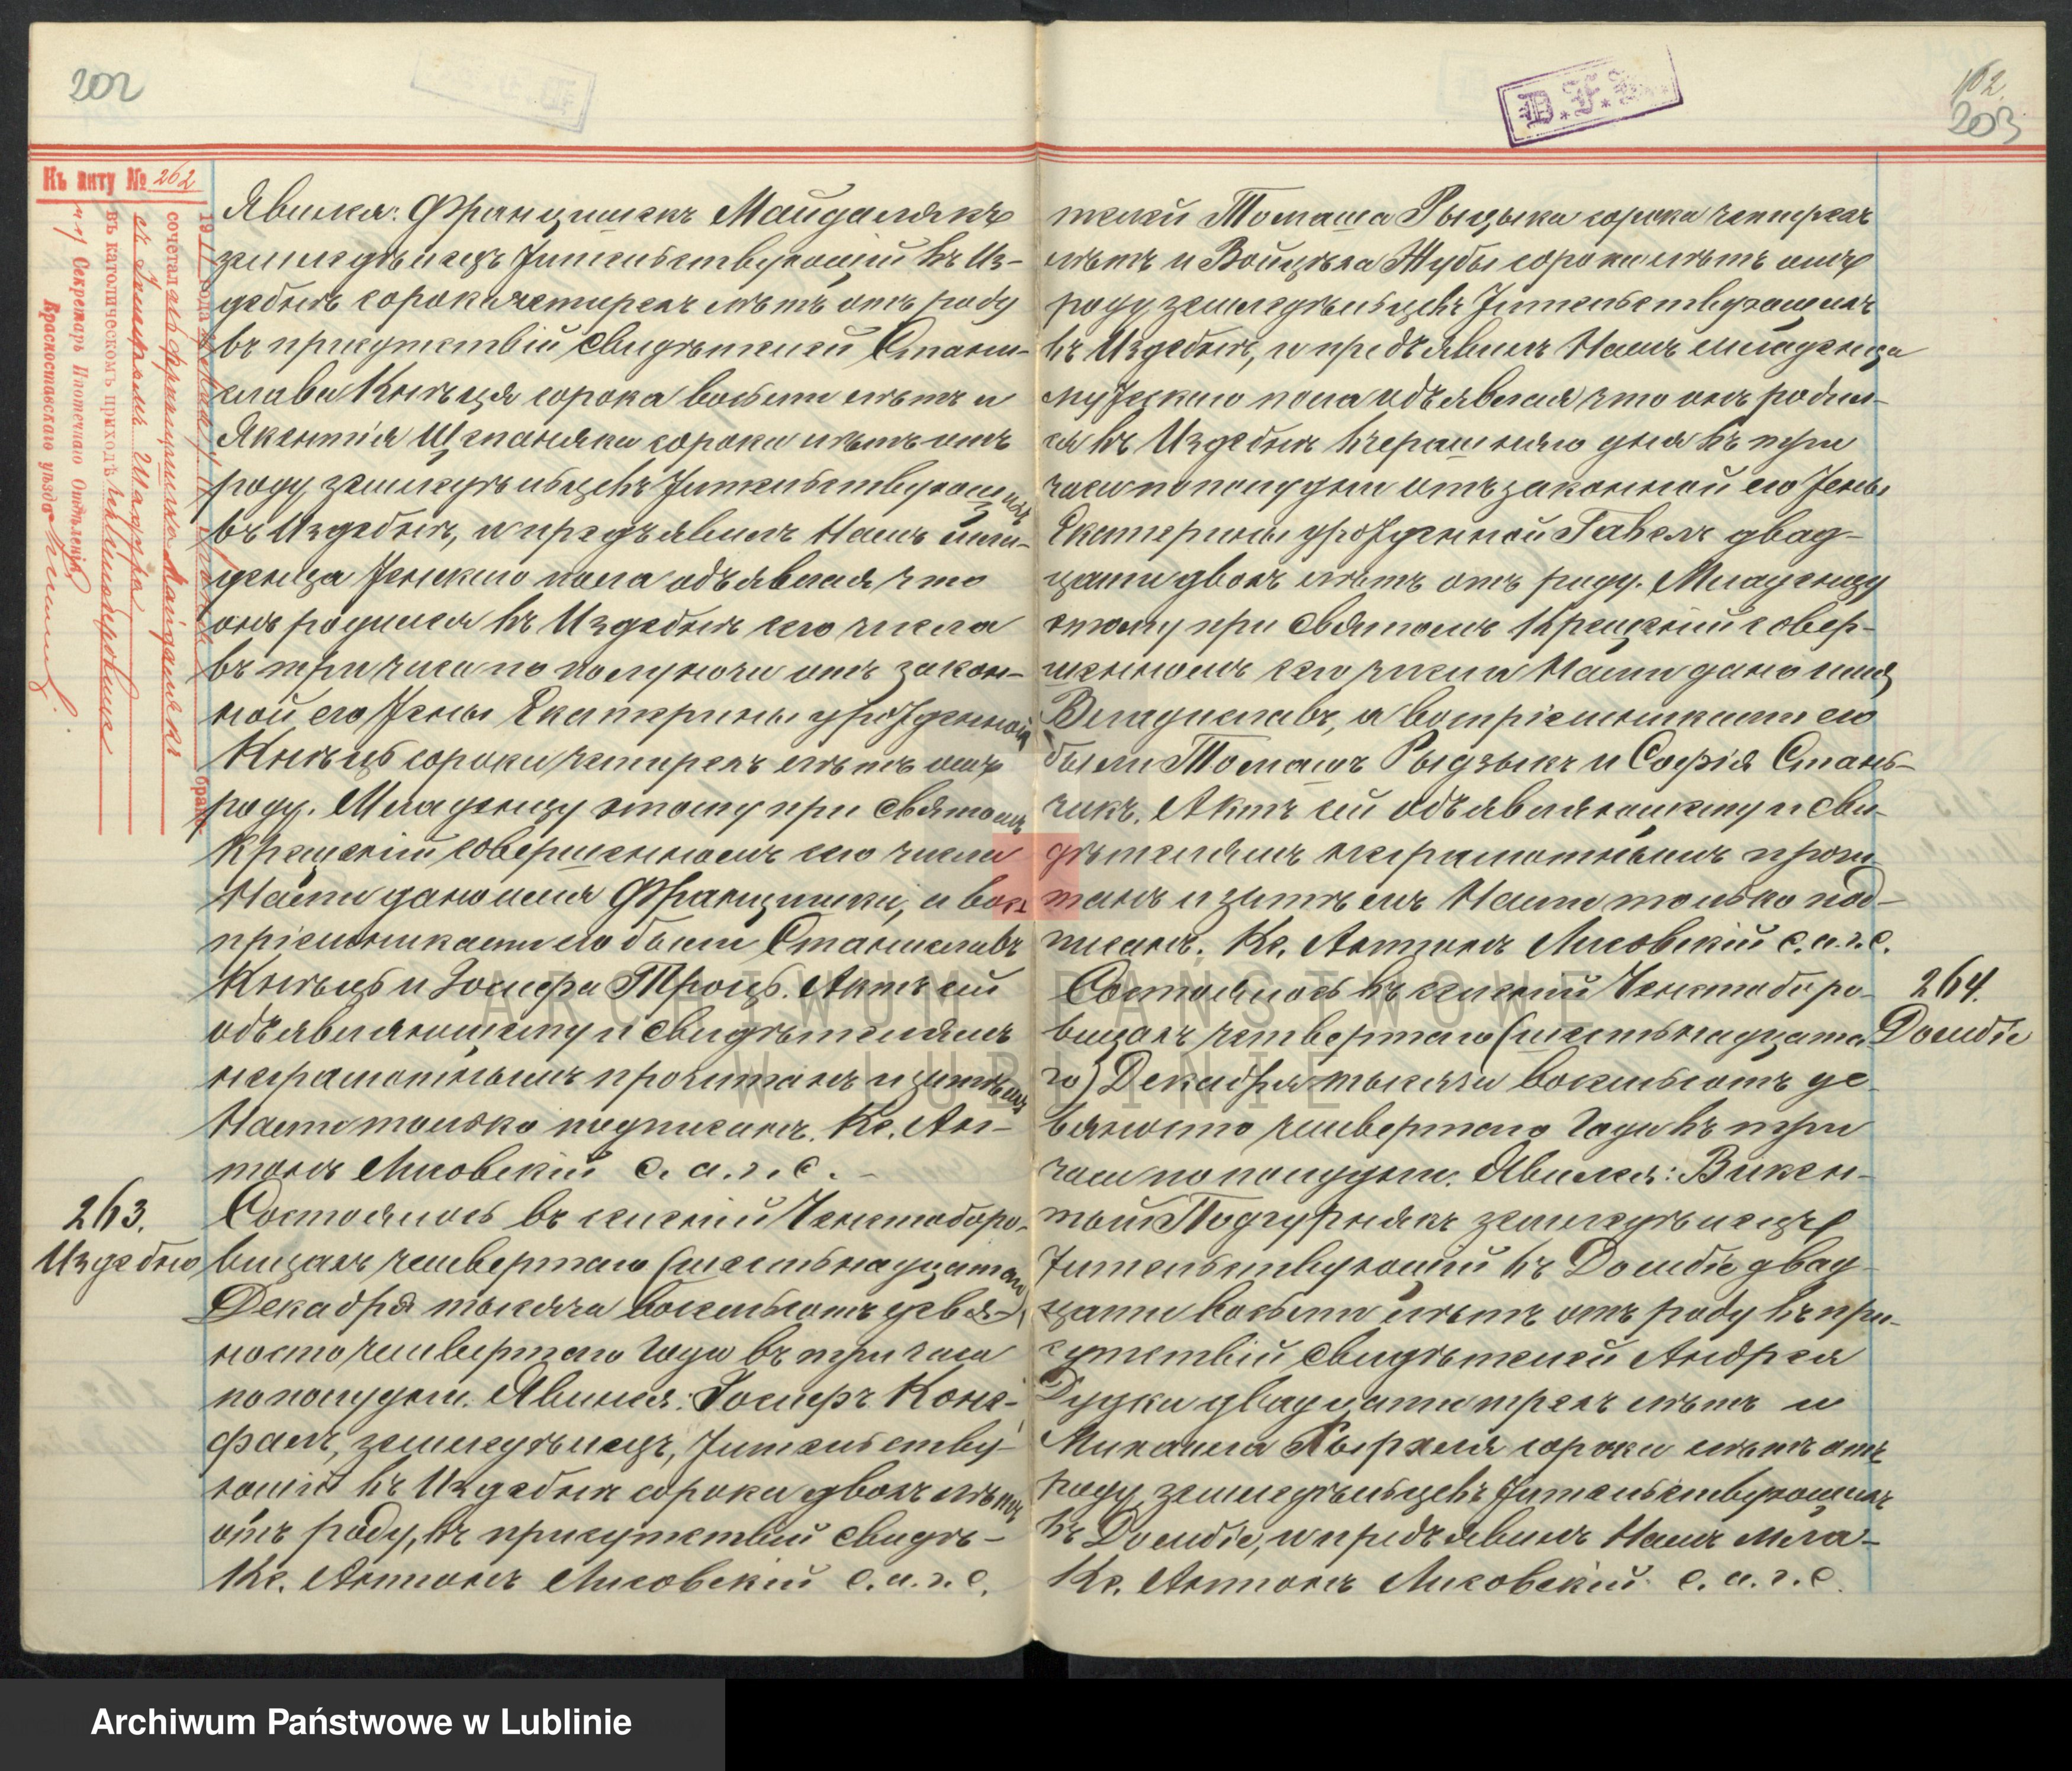 202
Къ акту № 262
1911 года
брак
сочеталась Францишка Майдалякъ
съ Мазуръ
въ католическомъ приходѣ
Секретарь Ипотечнаго Отдѣленія
Красноставскаго уѣзда
Явился: Францишекъ Майдалякъ
земледѣлецъ жительствующій въ Из-
дебнѣ сорока четырехъ лѣтъ отъ роду
въ присутствіи свидѣтелей Стани-
слава Кнѣця сорока восьми лѣтъ и
Якентія Щепаняка сорока лѣтъ отъ
роду, земледѣльцевъ жительствующихъ
въ Издебнѣ, и предъявилъ Намъ мла-
денца женскаго пола объявляя что
онъ родился въ Издебнѣ сего числа
въ три часа по полуночи отъ закон-
ной его жены Екатерины урожденной
Кнѣць сорока четырехъ лѣтъ отъ
роду. Младенцу этому при Святомъ
Крещеніи совершенномъ сего числа
Нами дано имя Францишка, а вос-
пріемниками его были Станиславъ
Кнѣць и Юзефа Троць. Актъ сей
объявляющему и свидѣтелямъ
неграмотнымъ прочитанъ и затѣмъ
Нами только подписанъ. Кс. Ан-
тонъ Лисовскій с. а. г. с.
263.
Издебно
Состоялось въ селеніи Ченстоборо-
вицахъ четвертаго (шестнадцатаго)
Декабря тысяча восемьсотъ девя-
носто четвертаго года въ три часа
по полудни. Явился: Юзефъ Коне-
фалъ, земледѣлецъ, жительству-
ющій въ Издебнѣ сорока двохъ лѣтъ
отъ роду, въ присутствіи свидѣ-
Кс. Антонъ Лисовскій с. а. г. с.
D.F.
162.
203
телей Томаша Рыдзыка сорока четырехъ
лѣтъ и Войцѣха Жубы сорока лѣтъ отъ
роду земледѣльцевъ жительствующихъ
въ Издебнѣ, и предъявилъ Намъ младенца
мужескаго пола объявляя что онъ родил-
ся въ Издебнѣ вчерашняго дня въ три
часа по полудни отъ законной его жены
Екатерины урожденной Гавелъ двад-
цати двохъ лѣтъ отъ роду. Младенцу
этому при Святомъ Крещеніи совер-
шенномъ сего числа Нами дано имя
Владиславъ, а воспріемниками его
были Томашъ Рыдзыкъ и Софія Стань-
чикъ. Актъ сей объявляющему и сви-
дѣтелямъ неграмотнымъ прочи-
танъ и затѣмъ Нами только под-
писанъ. Кс. Антонъ Лисовскій с. а. г. с.
264.
Домбіе
Состоялось въ селеніи Ченстоборо-
вицахъ четвертаго (шестнадцата-
го) Декабря тысяча восемьсотъ де-
вяносто четвертаго года въ три
часа по полудни. Явился: Викен-
тый Подгурнякъ земледѣлецъ
жительствующій въ Домбіе двад-
цати восьми лѣтъ отъ роду въ при-
сутствіи свидѣтелей Андрея
Дудки двадцати трехъ лѣтъ и
Михаила сорока лѣтъ отъ
роду, земледѣльцевъ жительствующихъ
въ Домбіе, и предъявилъ Намъ мла-
Кс. Антонъ Лисовскій с. а. г. с.
ARCHIWUM PAŃSTWOWE
W LUBLINIE
Archiwum Państwowe w Lublinie